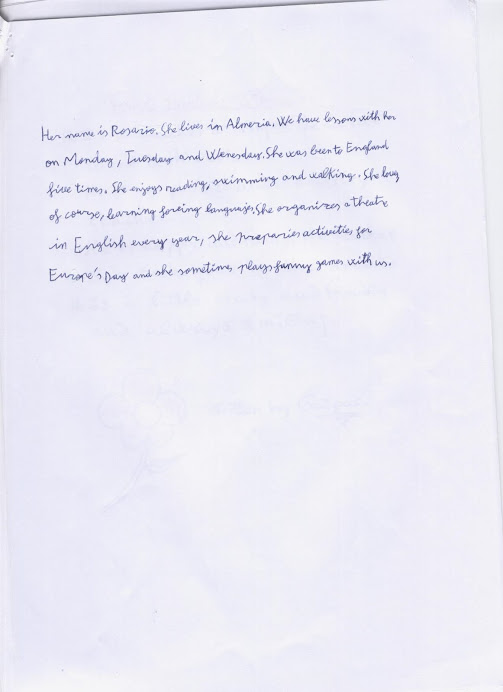 Her name is Rosario. She lives in Almeria. We have lessons with her
on Monday, Tuesday and Wenesday. She was been to England
five times. She enjoys reading, swimming and walking. She loves
of course, learning foreing languajes. She organizes a theatre
in English every year, she preparies activities for
Europe's Day and she sometimes plays funny games with us.